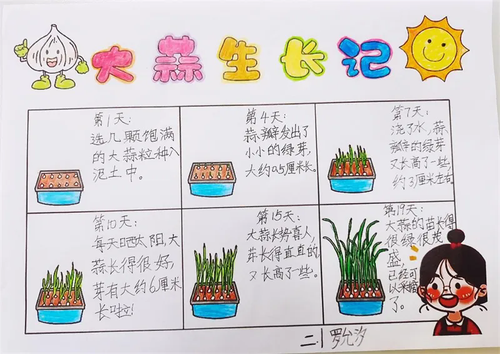 大蒜生长记
第1天:
选几颗饱满
的大蒜粒种入
泥土中。
第4天:
蒜瓣发出了
小小的绿芽,
大约0.5厘米长。
第7天:
浇了水,蒜
瓣的绿芽
又长高了一些,
约3厘米左右
第10天:
每天晒太阳,大
蒜长得很好,
芽有大约6厘米
长啦!
第15天:
大蒜长势喜人,
年长得直直的,
又长高了一些。
第19天:
大蒜的苗长得
很绿很茂
盛
已经可
以采摘
了。
二.小 罗允汐